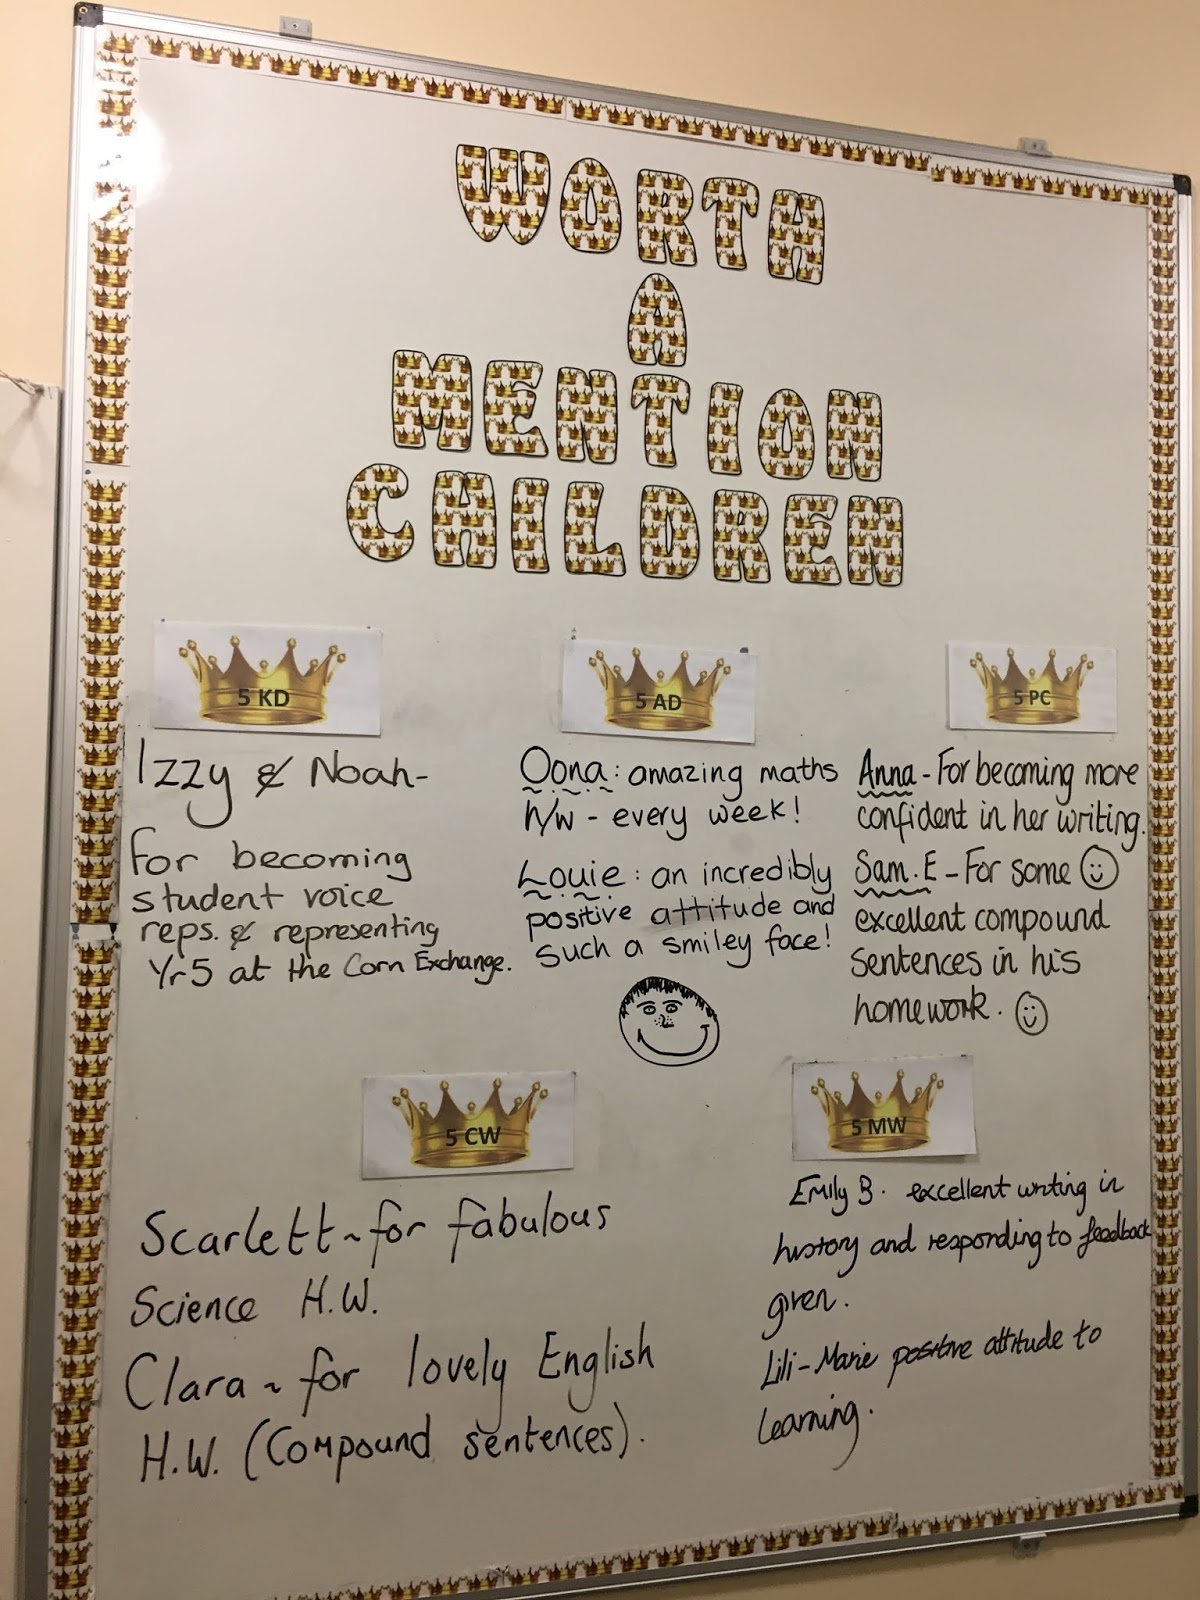 WORTH
A
MENTION
CHILDREN
5 KD
Izzy & Noah-
for becoming
student voice
reps. & representing
Yr5 at the Corn Exchange.
5 AD
Oona: amazing maths
h/w - every week!
Louie: an incredibly
positive attitude and
such a smiley face!
5 PC
Anna - For becoming more
confident in her writing.
Sam.E - For some
excellent compound
sentences in his
homework.
5 CW
Scarlett ~ for fabulous
Science H.W.
Clara ~ for lovely English
H.W. (Compound sentences).
5 MW
Emily B. excellent writing in
history and responding to feedback
given.
Lili-Marie positive attitude to
learning.